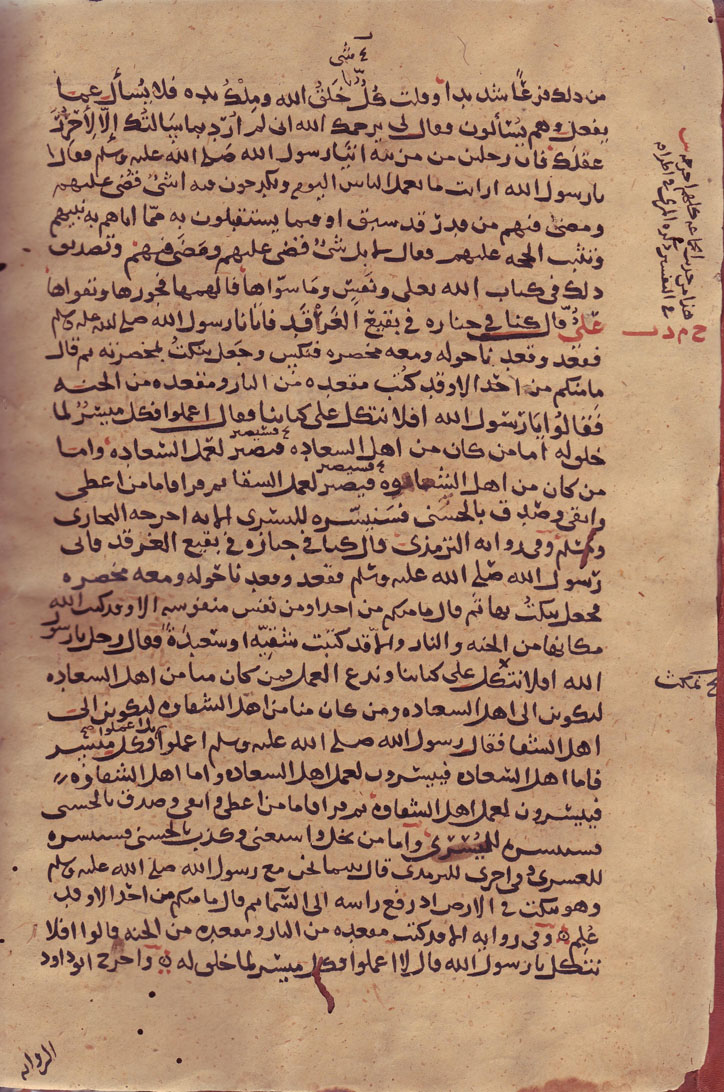 من ذلك فزعا شديدا وقلت كُلّ خَلقُ الله ومِلكُ يده فلا يُسأل عما
يفعل وهم يُسألون فقال لي يرحمك الله اني لم اُرِد بما سالتك إلّا لأحزُرَ
عقلك فان رجلين من مزينه اتيا رسول الله صَلى الله عليه وسلم فقالا
يارسول الله ارايت ما يعمل الناس اليوم ويكدحون فيه اشئ قُضى عليهم
ومضى فيهم من قدرٍ قد سبق او فيما يستقبلون به ممّا اتاهم به نبيهم
وثبتت الحجه عليهم فقال لا بل شئ قضى عليهم ومَضى فيهم وتصديق
ذلك في كتاب الله تعلى ونَفسٍ ومَا سوّاها فالهمها فجورها وتقواها
عَلِيّ قال كنا في جنازه في بقيع الغرقد فاتانا رسول الله صلى الله عليه وسلم
فقعد وقعدنا حوله ومعه مخصره فنكس وجعل ينكتُ بمخصرته ثم قال
مامنكم من احد الا وقد كُتب مقعده من النار ومقعده من الجنه
فقالوا يارَسُول الله افلا نتكل على كتابنا فقال اعملوا فكل ميسرٌ لما
خلق له امامن كان من اهل السعاده فسيصير لعمل السَعاده واما
من كان من اهل الشقاوه فيصير لعمل الشقا ثم قرا فامامن اعطى
واتقى وصدق بالحُسنى فسَنيسّره لليسرى الايه اخرجه البخارى
ومسلم وفى روايه الترمذى قال كنا في جنازه في بقيع الغرقد فاتى
رَسُول الله صَلى الله عليه وسلم فقعد وقعدنا حوله ومعه مخصره
فجعل ينكت بها ثم قال مامنكم من احد اومن نفس منفوسه الا وقد كتب الله
مكانها من الجنه والنار والا قد كتبت شقيّه اوسعيدةً فقال رجل يارسول
الله افلا نتكل على كتابنا وندع العمل فمن كان منا من اهل السعاده
ليكونن الى اهل السعاده ومن كان منا من اهل الشقاوه ليكونن الى
اهل الشقا فقال رسول الله صلى الله عليه وسلم اعملوا فكل ميسر
فاما اهل السعاده فييسرون لعمل اهل السعاده واما اهل الشقاوه
فييسرون لعمل اهل الشقاوه ثم قرا فامامن اعطى واتقى وصدق بالحسنى
فسنيسره لليُسْرَى وامامن بخل واستغنى وكذب بالحسنى فسنيسره
للعسرى وفى اخرى للترمذى قال بينمانحن مع رسول الله صلى الله عليه وسلم
وهو ينكت في الارض اذ رفع راسه الى السَّما ثم قال مامنكم من احد الا وقد
عُلم وفى روايه الا قد كتب مقعده من النار ومقعده من الجنه قالوا افلا
نتكل يارسول الله قال لا اعملوا فكل ميسر لما خلق له واخرج ابوداود
الروايه